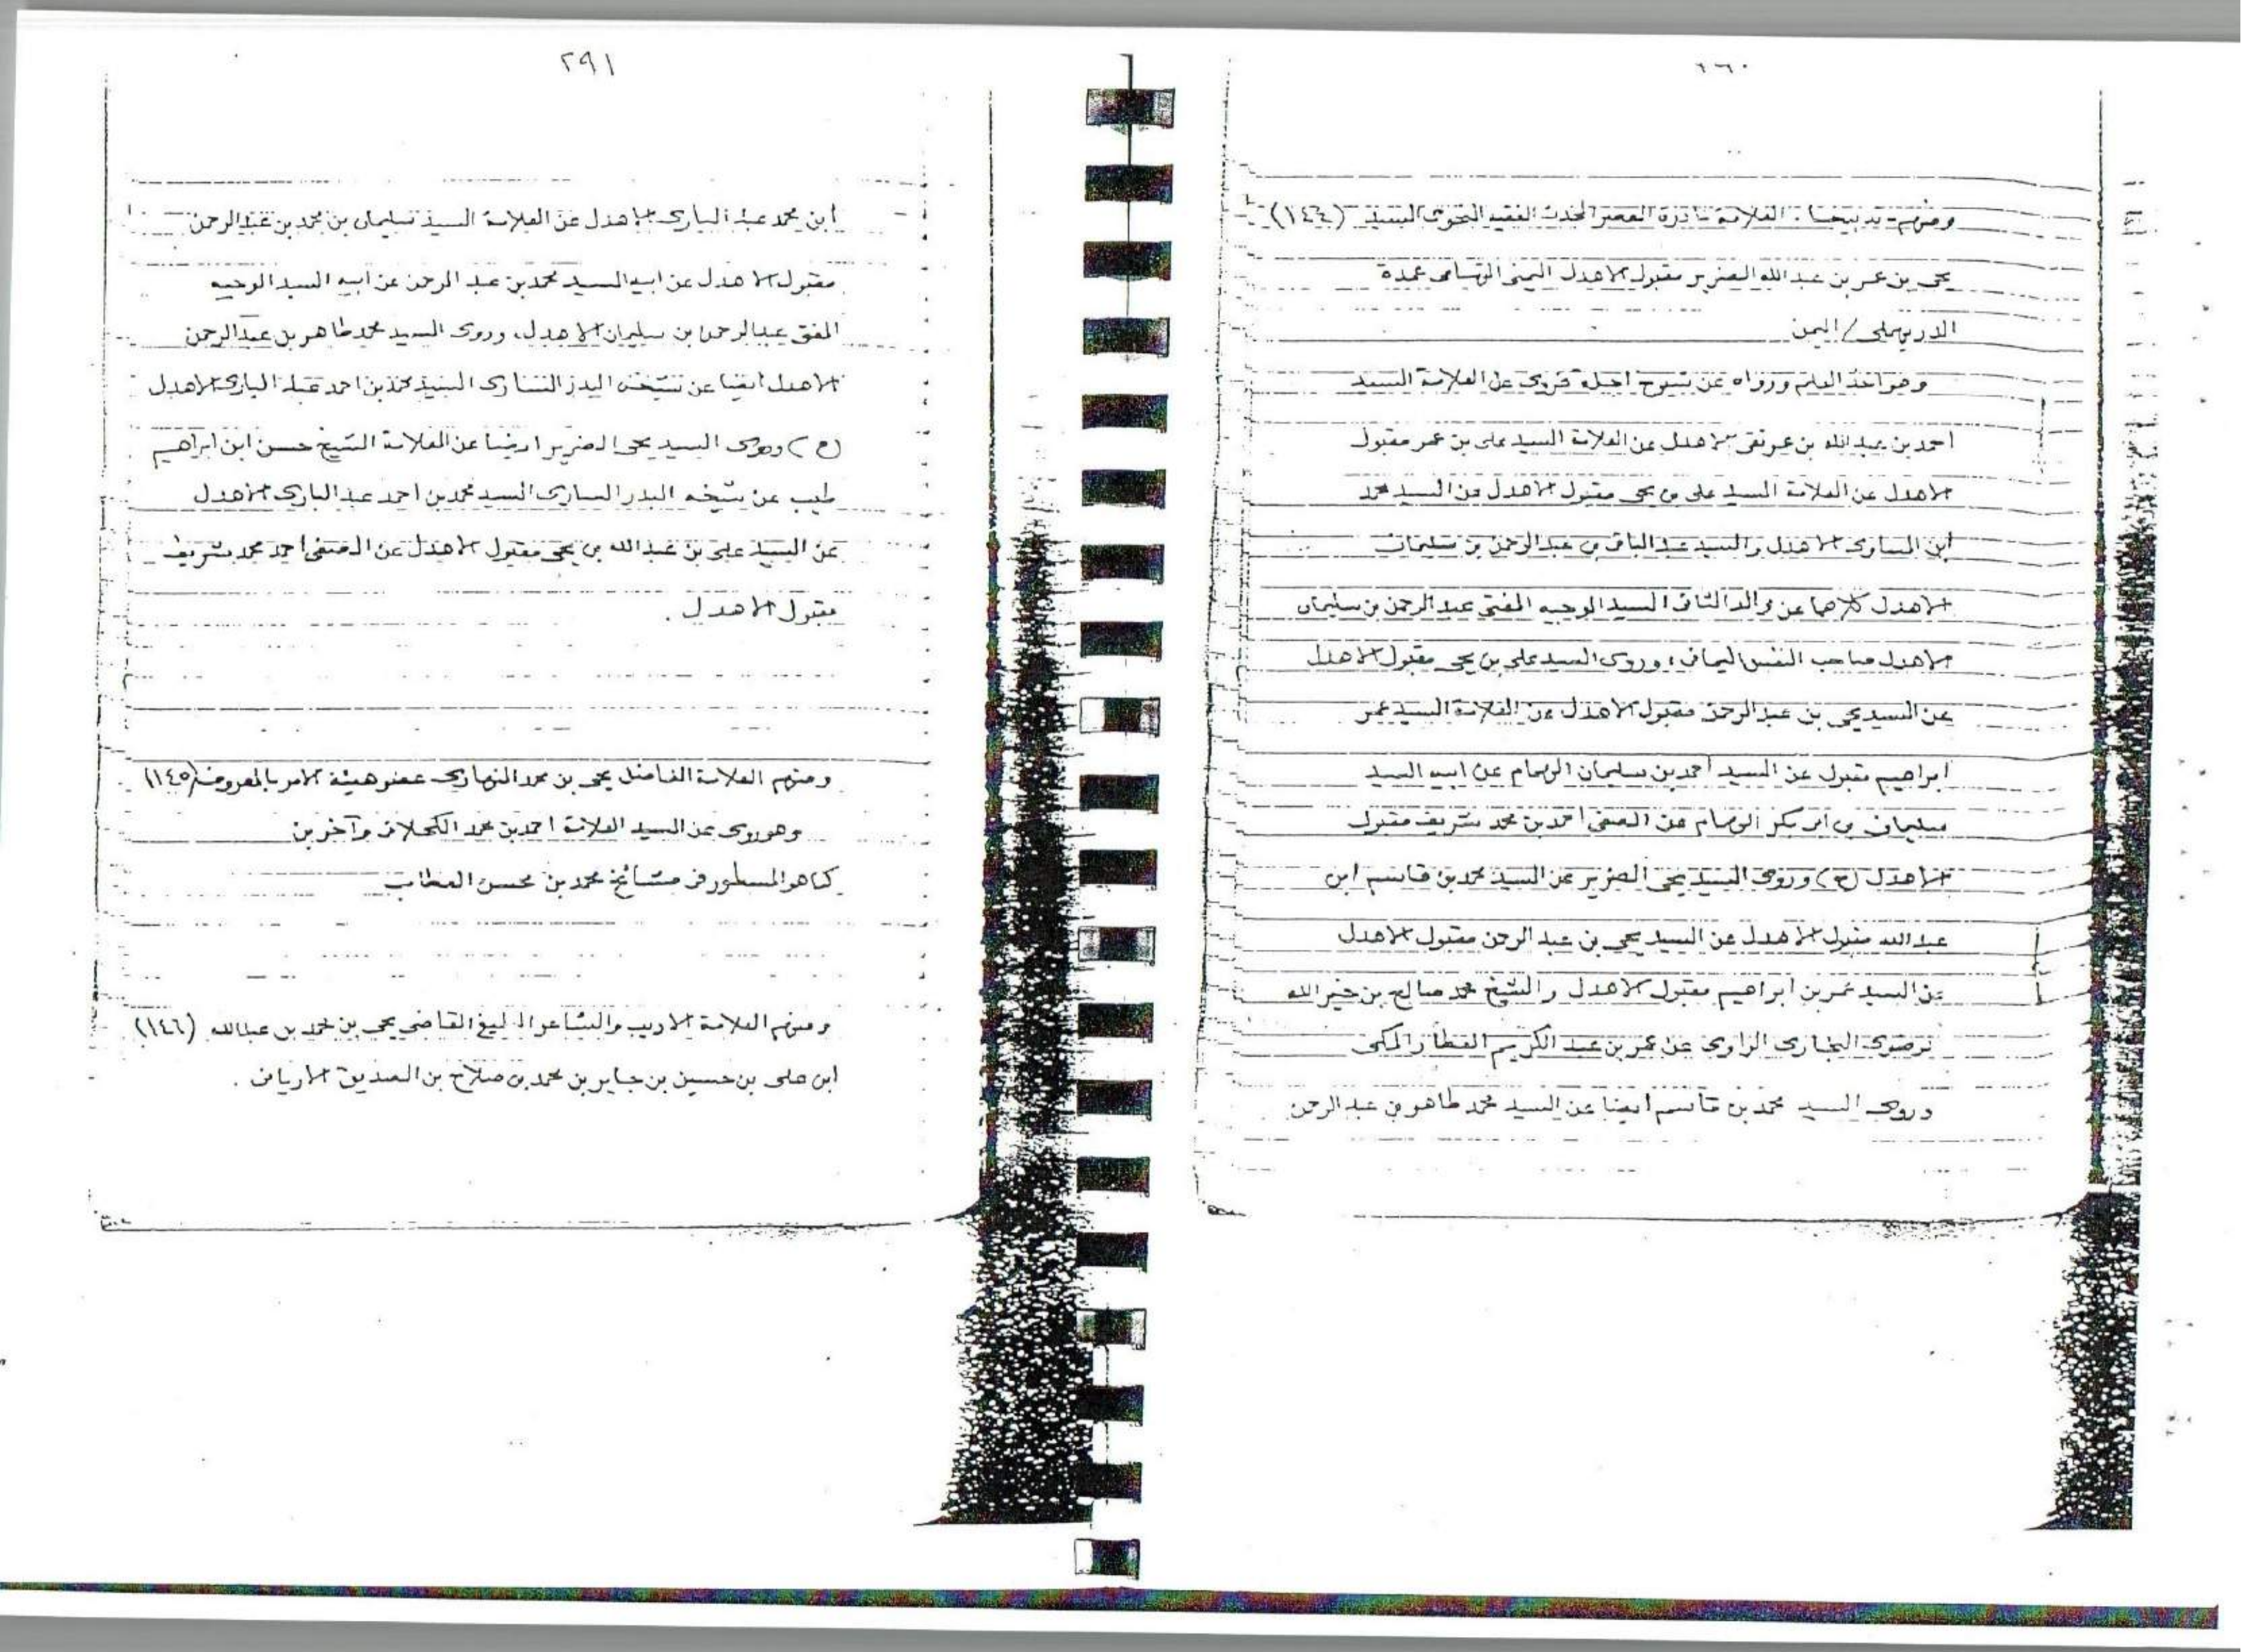 ومنهم تدبيجا: العلامة نادرة العصر المحدث الفقيه النحوى السيد (١٤٤)
يحى بن عمر بن عبد الله الضرير مقبول الاهدل اليمنى التهامى عمدة
الدريهمى / اليمن
وهو اخذ العلم ورواه عن شيوخ اجلة فروى عن العلامة السيد
احمد بن عبد الله بن الاهدل عن العلامة السيد على بن عمر مقبول
الاهدل عن العلامة السيد على بن يحى مقبول الاهدل عن السيد محمد
ابن المساوى الاهدل والسيد عبد الباقى بن عبد الرحمن بن سليمان
الاهدل كلاهما عن والد الثانى السيد الوجيه المفتى عبد الرحمن بن سليمان
الاهدل صاحب النفس اليمانى، وروى السيد على بن يحى مقبول الاهدل
عن السيد يحى بن عبد الرحمن مقبول الاهدل عن العلامة السيد عمر
ابراهيم مقبول عن السيد احمد بن سليمان الهجام عن ابيه السيد
سليمان بن ابى بكر الهجام عن الصفى احمد بن محمد شريف مقبول
الاهدل (ح) وروى السيد يحى الضرير عن السيد محمد بن قاسم ابن
عبد الله مقبول الاهدل عن السيد يحى بن عبد الرحمن مقبول الاهدل
عن السيد عمر بن ابراهيم مقبول الاهدل والشيخ محمد صالح بن خير الله
الرضوى البخارى الراوى عن عمر بن عبد الكريم العطار المكى
وروى السيد محمد بن قاسم ايضا عن السيد محمد طاهر بن عبد الرحمن
٢٩١
ابن محمد عبد البارى الاهدل عن العلامة السيد سليمان بن محمد بن عبد الرحمن
مقبول الاهدل عن ابيه السيد محمد بن عبد الرحمن عن ابيه السيد الوجيه
المفتى عبد الرحمن ابن سليمان الاهدل، وروى السيد محمد طاهر بن عبد الرحمن
الاهدل ايضا عن شيخه البدر السارى السيد محمد بن احمد عبد البارى الاهدل
(ح) وروى السيد يحى الضرير ايضا عن العلامة الشيخ حسن ابن ابراهيم
طيب عن شيخه البدر السارى السيد محمد بن احمد عبد البارى الاهدل
عن السيد على بن عبد الله بن يحى مقبول الاهدل عن الصفى احمد محمد شريف
مقبول الاهدل .
ومنهم العلامة الفاضل يحى بن محمد النهارى عضو هيئة الامر بالمعروف (١٤٥)
وهو روى عن السيد العلامة احمد بن محمد الكحلانى وآخرين
كما هو المسطور فى مشائخ محمد بن محسن العطاب
ومنهم العلامة الاديب والشاعر البليغ القاضى يحى بن محمد بن عبدالله (١٤٦)
ابن على بن حسين بن جابر بن محمد بن صلاح بن الصديق الاريانى .